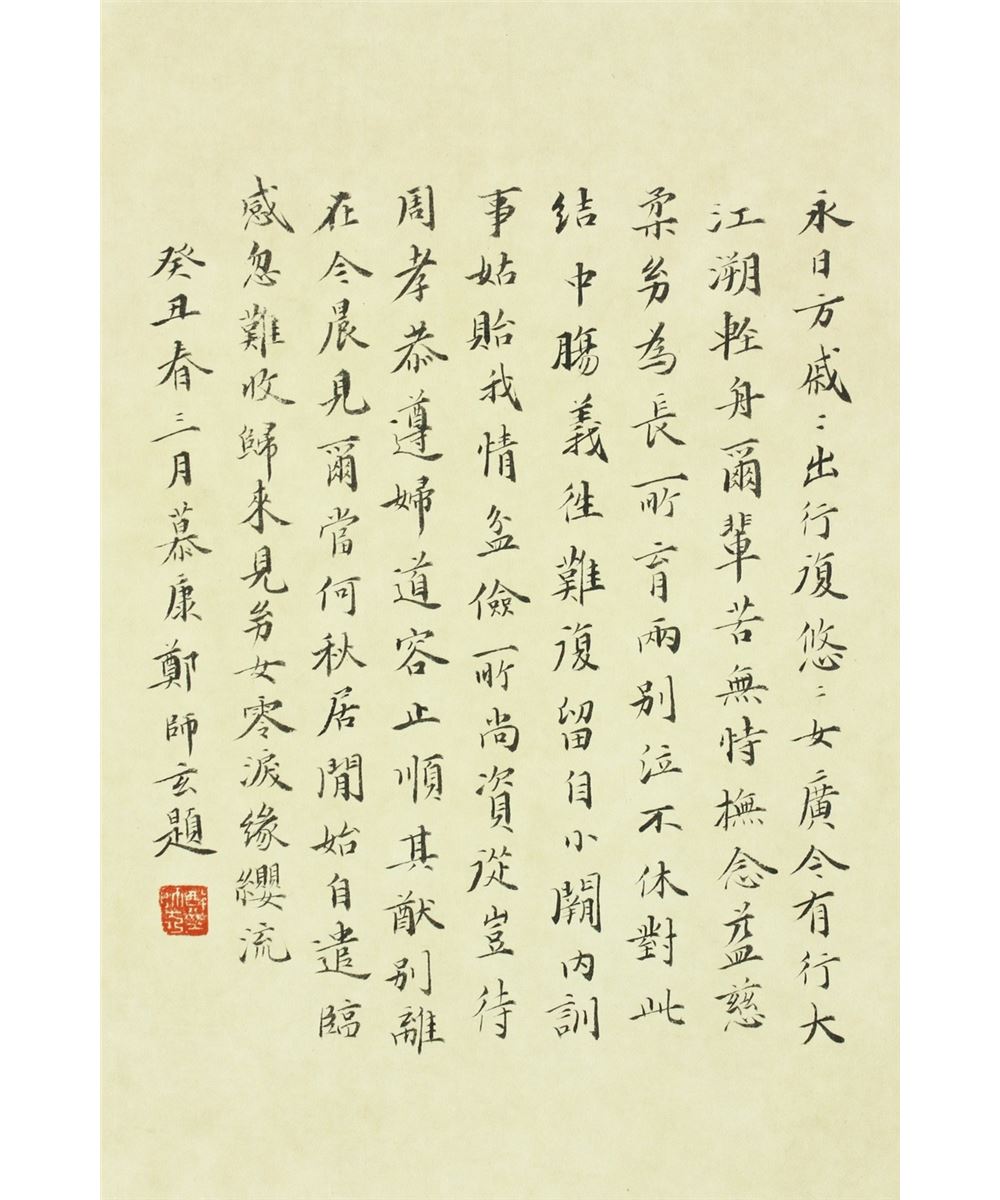 永日方戚〻出行復悠〻女廣今有行大
江溯輕舟爾輩苦無恃撫念益慈
柔幼為長所育兩別泣不休對此
結中腸義往難復留自小闕內訓
事姑貽我情盆儉所尚資從豈待
周孝恭遵婦道容止順其猷別離
在今晨見爾當何秋居閒始自遣臨
感忽難收歸來見幼女零淚緣纓流
癸丑春三月慕康鄭師玄題